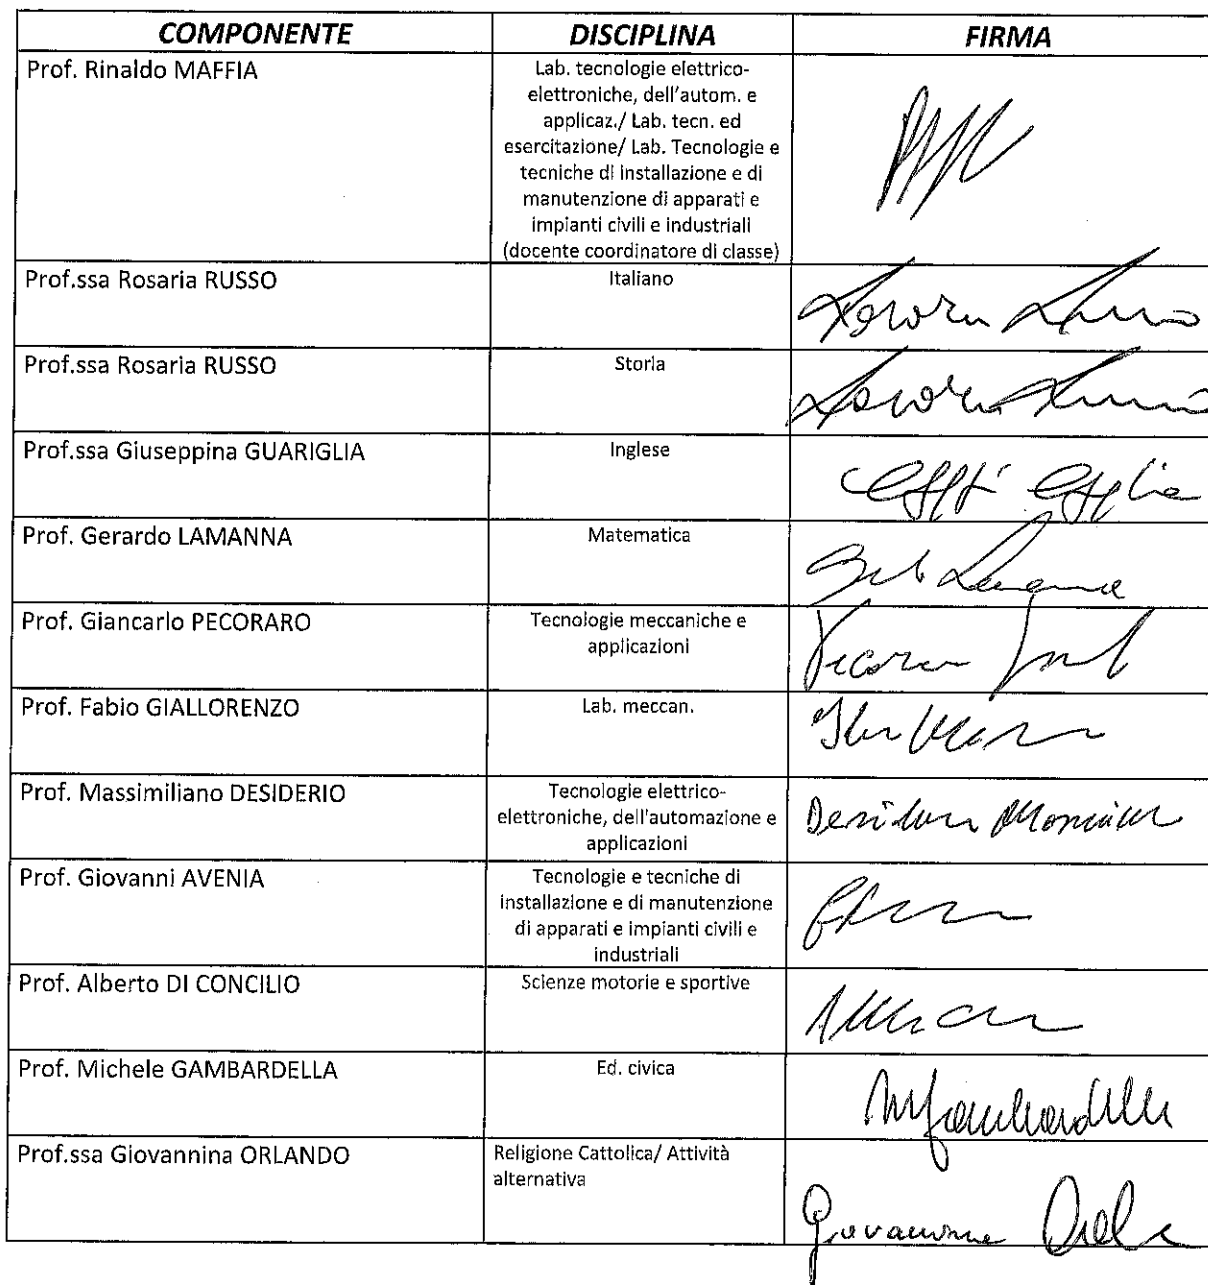 COMPONENTE DISCIPLINA FIRMA
Prof. Rinaldo MAFFIA
Lab. tecnologie elettrico-
elettroniche, dell'autom. e
applicaz./ Lab. tecn. ed
esercitazione/ Lab. Tecnologie e
tecniche di installazione e di
manutenzione di apparati e
impianti civili e industriali
(docente coordinatore di classe)
Prof.ssa Rosaria RUSSO
Italiano
Prof.ssa Rosaria RUSSO
Storia
Prof.ssa Giuseppina GUARIGLIA
Inglese
Prof. Gerardo LAMANNA
Matematica
Prof. Giancarlo PECORARO
Tecnologie meccaniche e
applicazioni
Prof. Fabio GIALLORENZO
Lab. meccan.
Prof. Massimiliano DESIDERIO
Tecnologie elettrico-
elettroniche, dell'automazione e
applicazioni
Prof. Giovanni AVENIA
Tecnologie e tecniche di
installazione e di manutenzione
di apparati e impianti civili e
industriali
Prof. Alberto DI CONCILIO
Scienze motorie e sportive
Prof. Michele GAMBARDELLA
Ed. civica
Prof.ssa Giovannina ORLANDO
Religione Cattolica/ Attività
alternativa